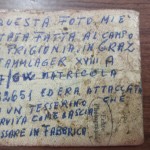 QUESTA FOTO MI E
STATA FATTA AL CAMPO
PRIGIONIA IN GRAZ
STAMMLAGER XVIII A
MATRICOLA
32651 ED ERA ATTACCATO
UN TESSERINO CHE
COME LASCIA
PASSARE IN FABBRICA